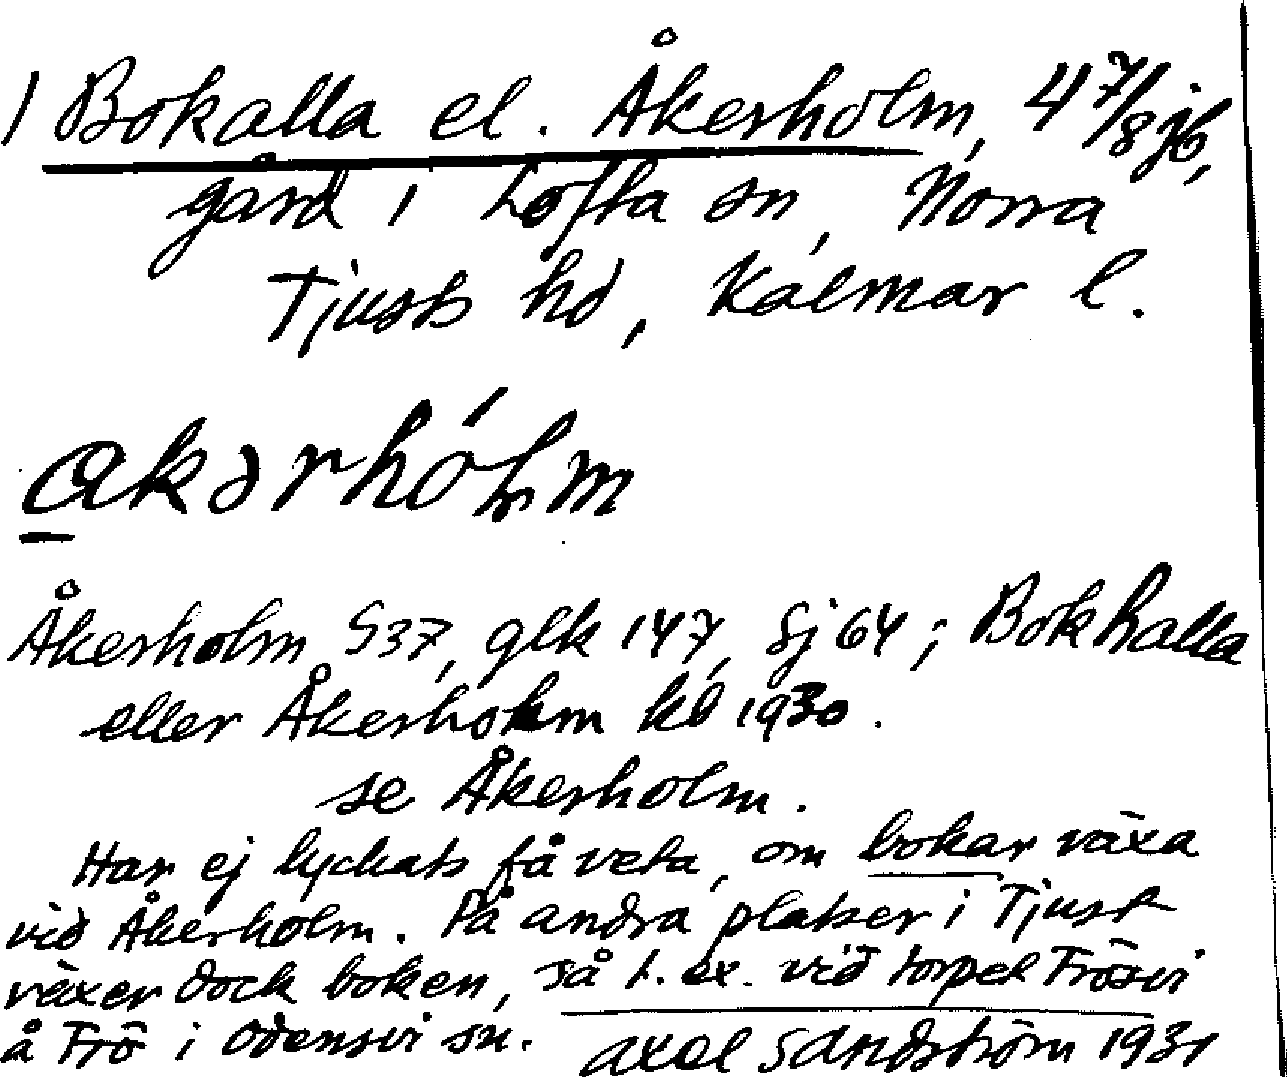 1 Bokalla el. Åkerholm, 4 7/8 jb,
gård i Lofta sn, Norra
Tjusts hd, Kalmar l.
akərhólm
Åkerholm S37, glk 147, Sj 64; Bokhalla
eller Åkerholm kb 1930.
se Åkerholm.
Har ej lyckats få veta, om bokar växa
vid Åkerholm. På andra platser i Tjust
växer dock boken, så t. ex. vid torpet Frösvi
å Frö i Odensvi sn.
Axel Sandström 1931